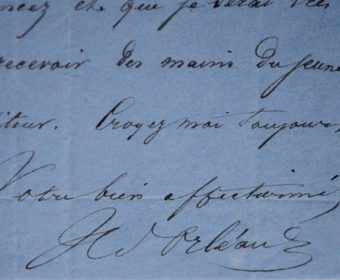 ancez etc que je serai très
recevoir des mains du jeune
iteur. Croyez moi toujours,
Votre bien affectionné,
H d'Orléans